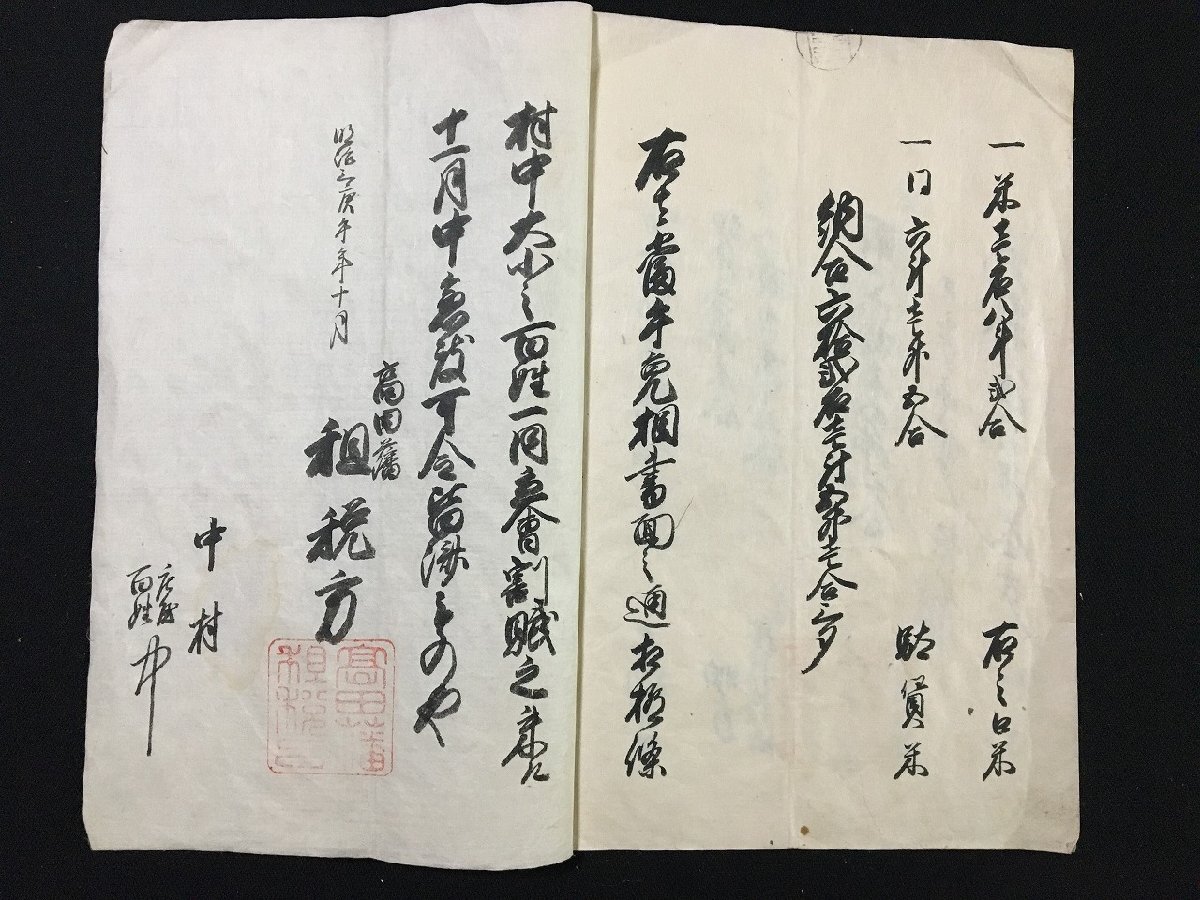 一米壱石八斗弐合 右之口米
一同六斗壱升五合 駄賃米
納合六拾弐石壱斗四升壱合三勺
右者当午免相書面之通相極候條
村中大小之百姓一同立会割賦之来ル
十一月中急度可令皆済もの也
明治三庚午年十月
高田藩
租税方
中村
庄屋
百姓中